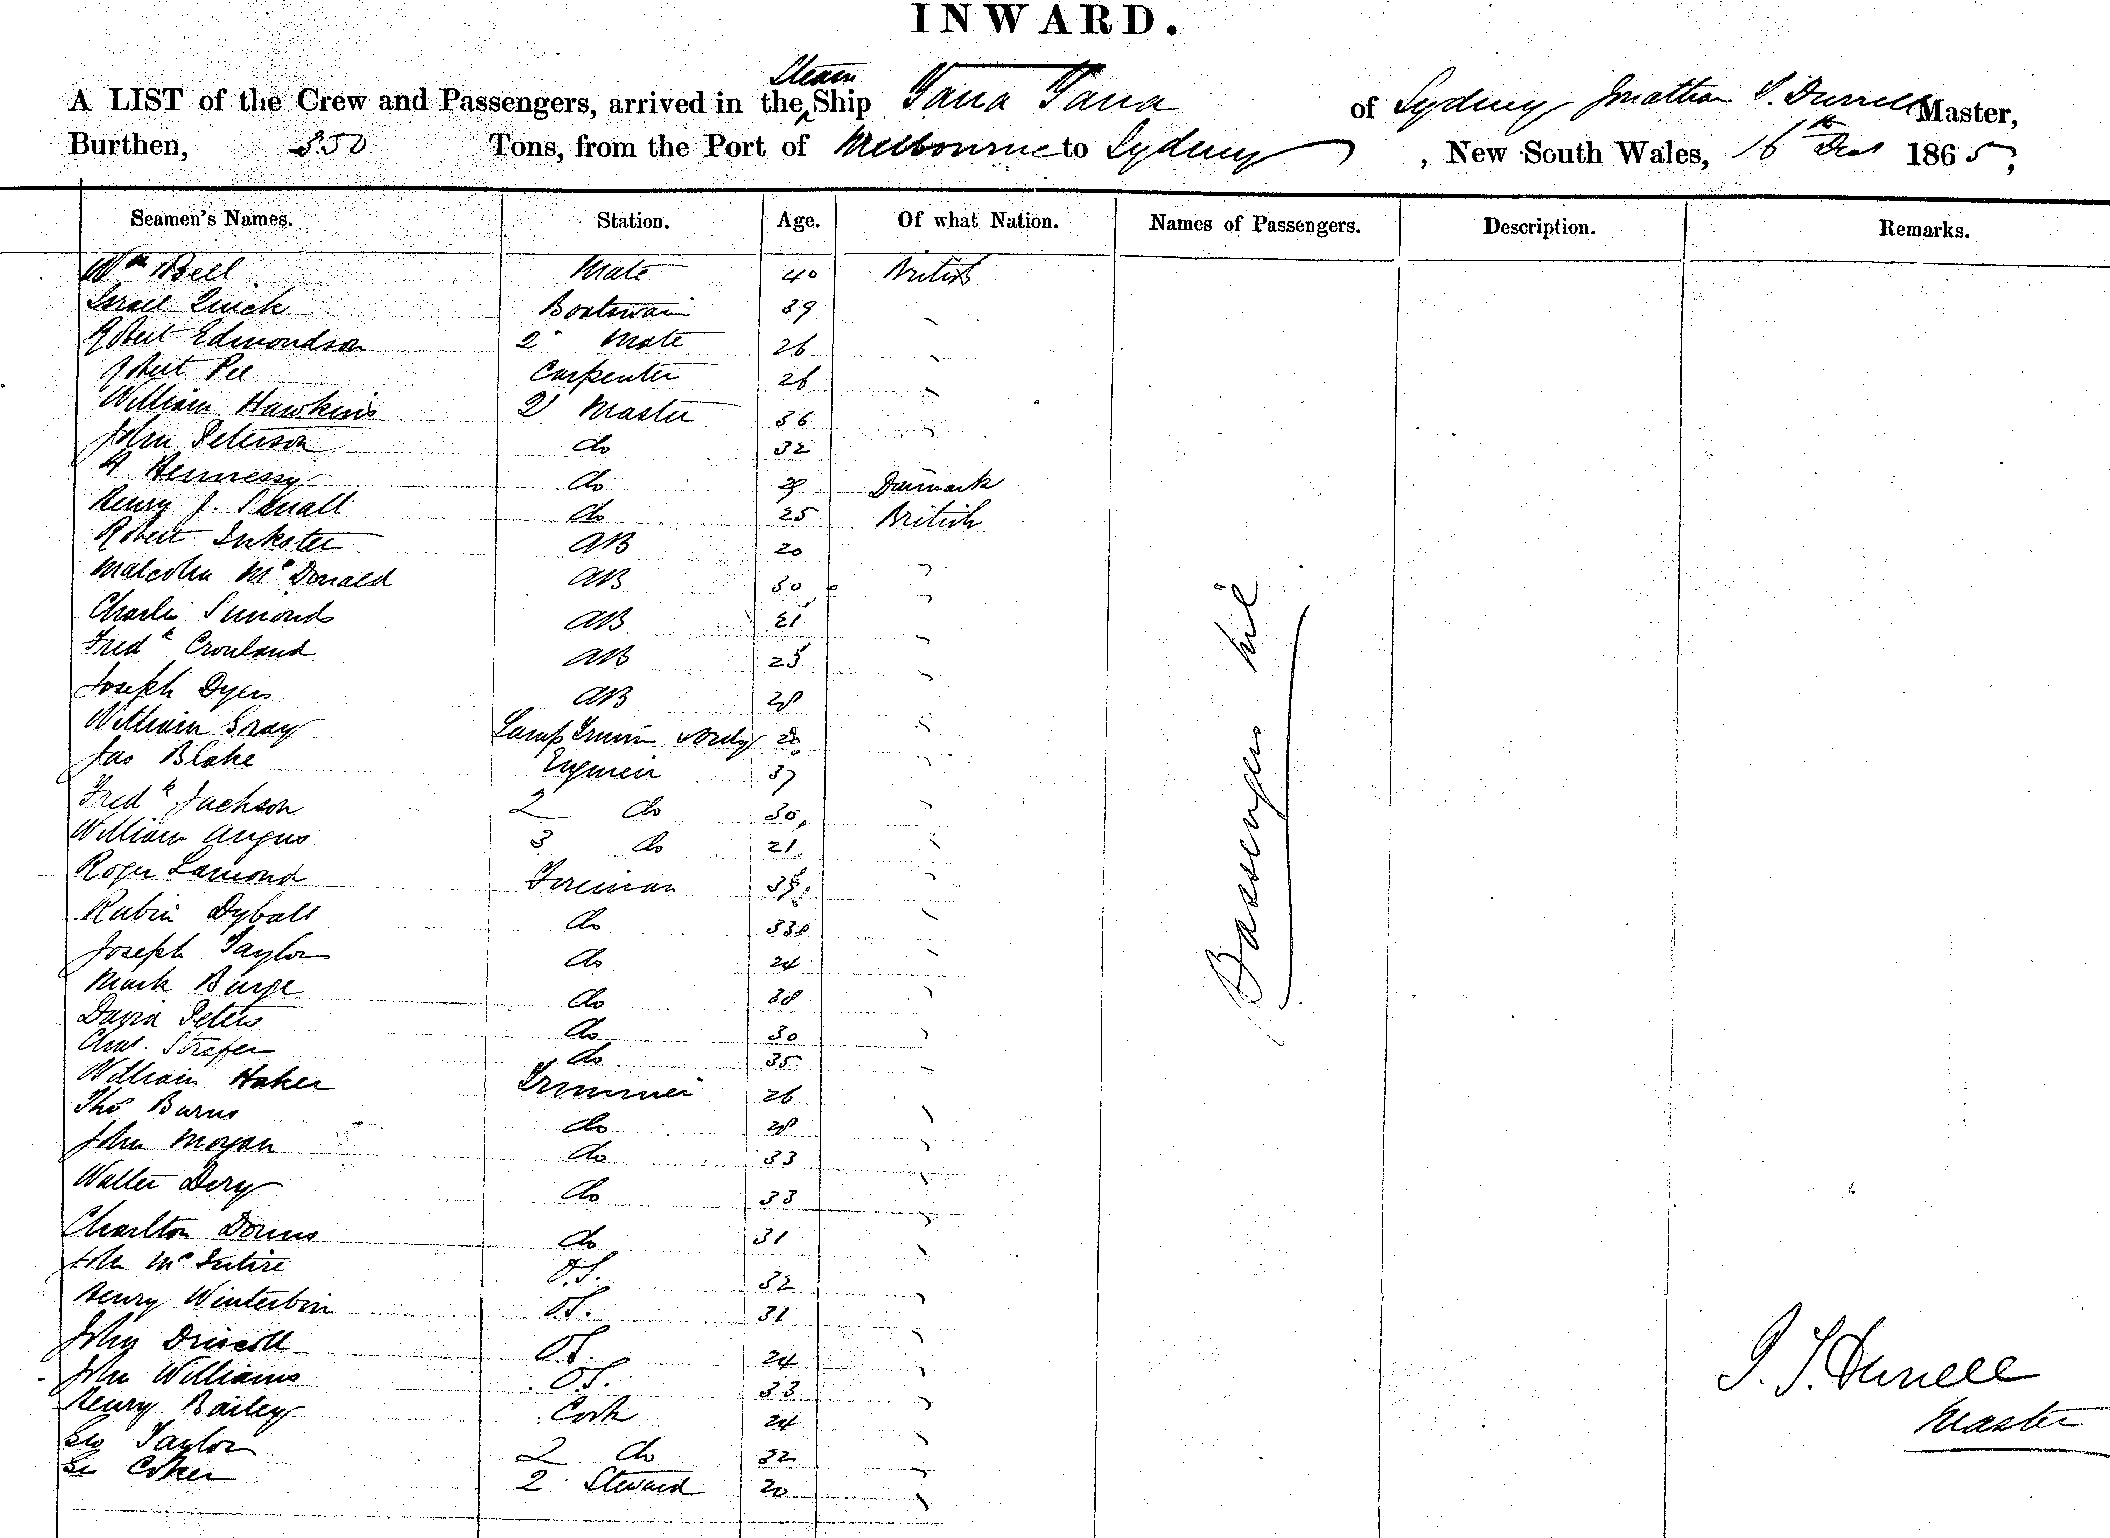 INWARD.
Steam
A LIST of the Crew and Passengers, arrived in the Ship Tara Tara of Sydney Jonathan S. Durrell Master,
Burthen, 350 Tons, from the Port of Melbourne to Sydney, New South Wales, 16th Decr 1865;
Seamen's Names. Station. Age. Of what Nation. Names of Passengers. Description. Remarks.
Wm Bell Mate 40 British
Quick Boatswain 39 "
Robert Edmondson 2 Mate 26 "
Robert Pee Carpenter 26 "
William Hawkins 2 Master 36 "
John Peterson do 32
H Hennessy do Denmark
Henry J. Small do 25 British
Robert Inkster AB 20
Malcolm McDonald AB 30 "
Charles Simonds AB 21 "
Fredk Crouland AB 25 "
Joseph Dyers AB 28 "
William Gray Lamp 20 "
Jas Blake Engineer 37 "
Fredk Jackson 2 do 30 "
William Angus 3 do 21 "
Roger Lamond Fireman 35 "
Rubin Dyball do 38 "
Joseph Taylor do 24 "
Mark Burge do 38 "
David Peters do 30 "
do 35 "
William Haker Trimmer 26 "
Thos Burns do 28 "
John Morgan do 33 "
Walter Dery do 33 "
Charlton Downs do 31 "
John McIntire O.S. 32 "
Henry Winterbin O.S. 31 "
John Driscoll O.S. 24 "
John Williams O.S. 33 "
Henry Bailey Cook 24 "
Geo Taylor 2 do 32 "
Geo Coker 2 Steward 20 "
Passengers nil
J. S. Durrell
Master